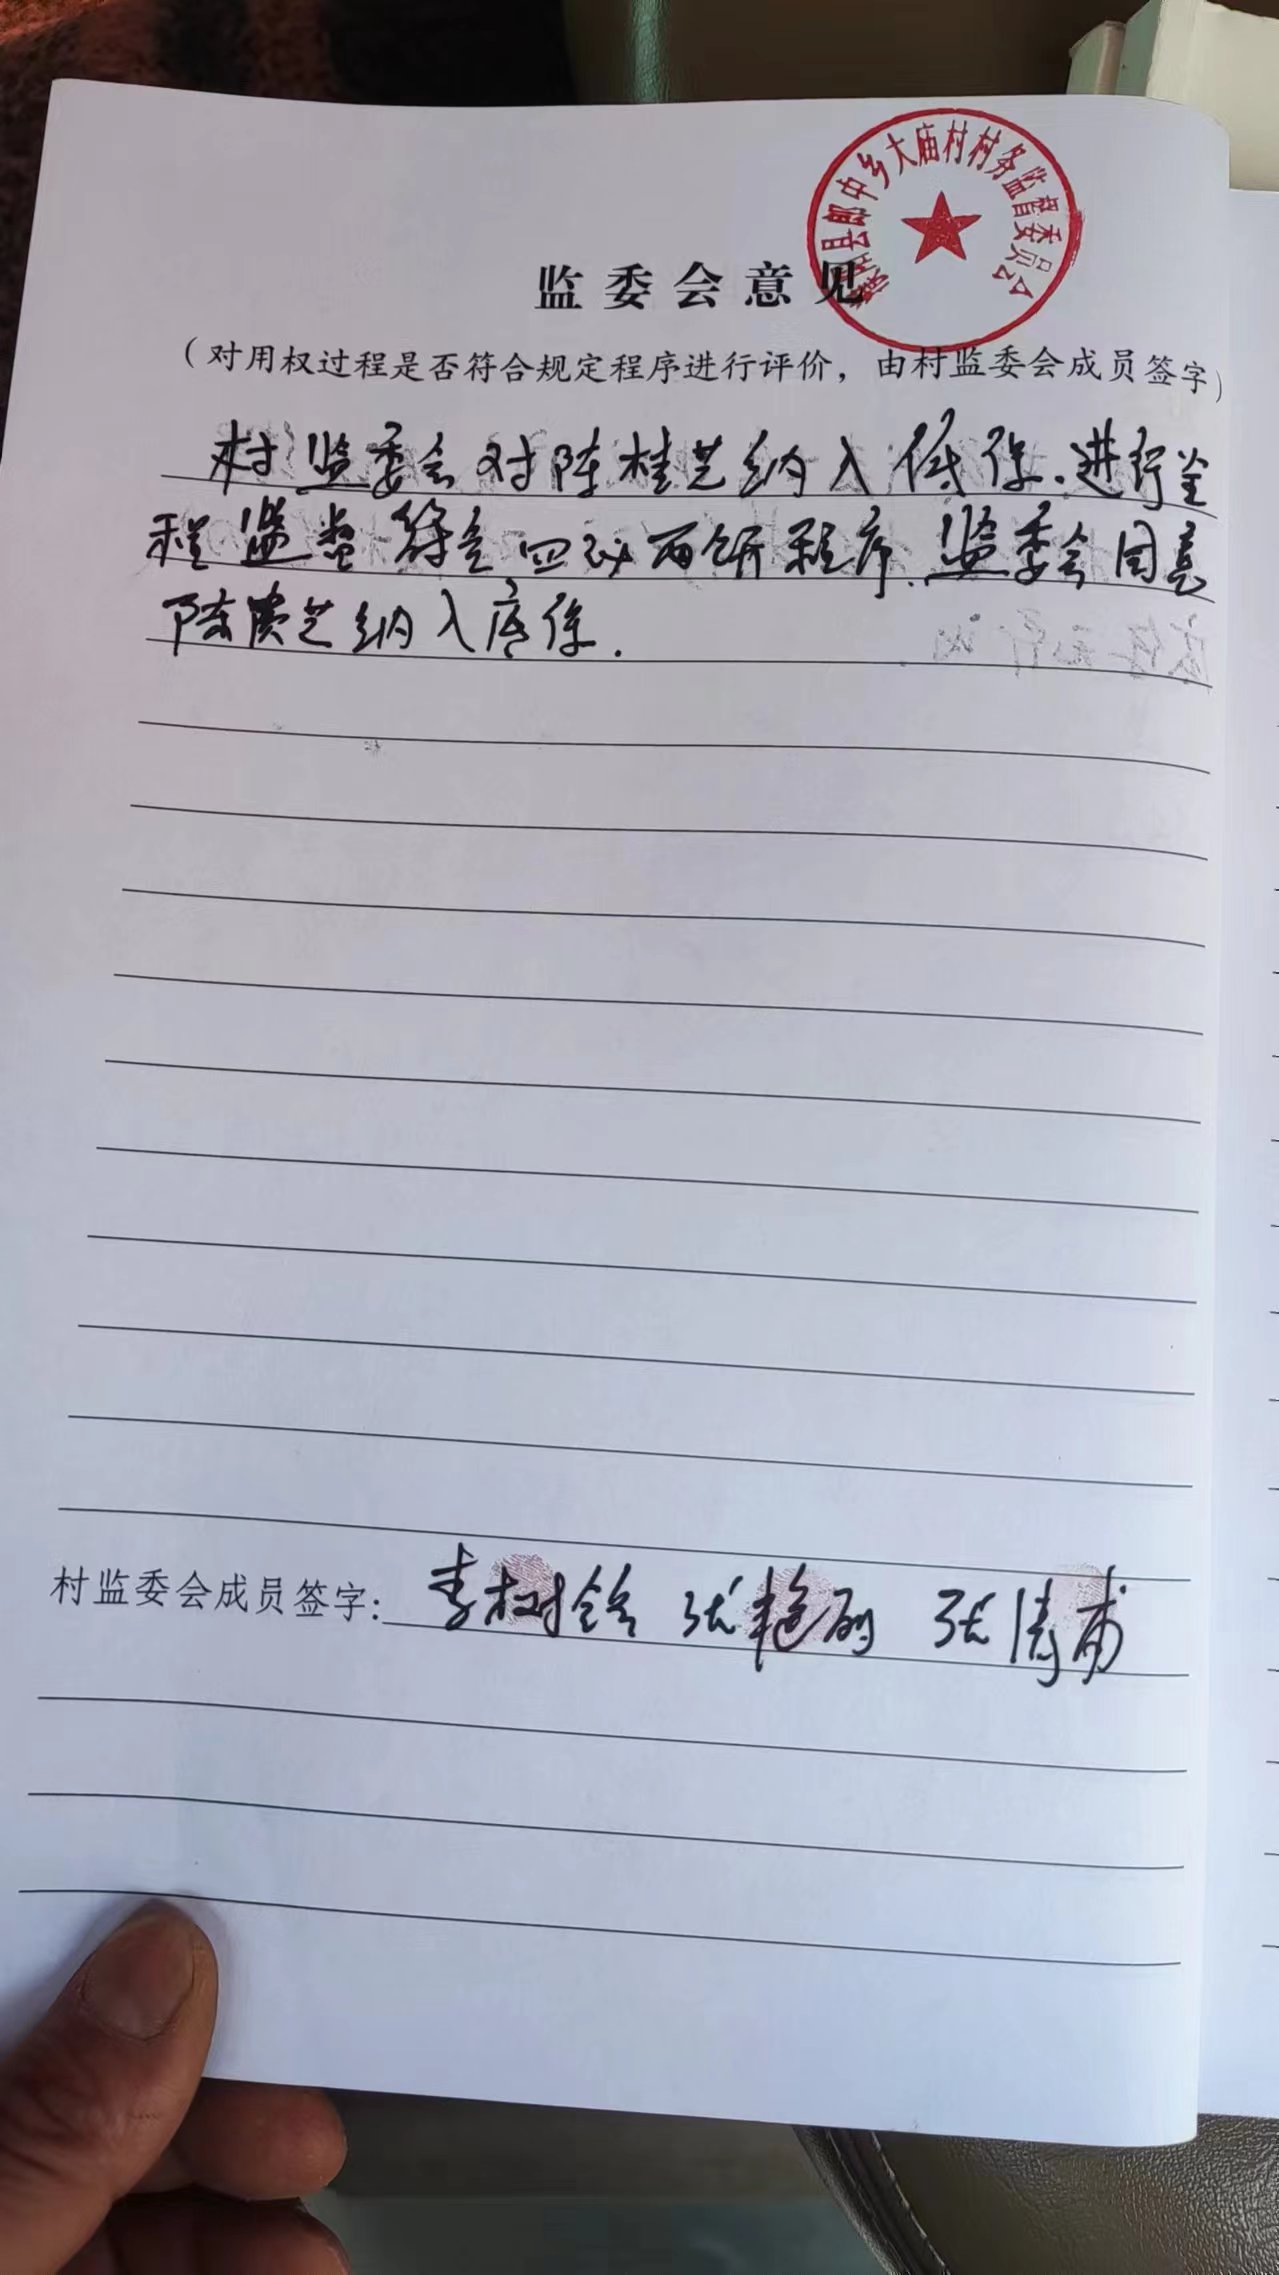 县郎中乡大庙村村务监督委员会
监委会意见
（对用权过程是否符合规定程序进行评价，由村监委会成员签字）
村监委会对陈桂芝纳入低保.进行全
程监督符合四议两公开程序.监委会同意
陈贵芝纳入底保.
村监委会成员签字：李树全 张艳丽 张清甫